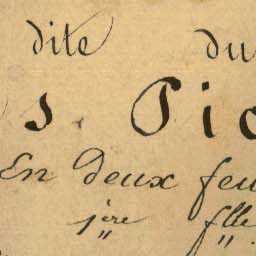 dite du
s Pic
En Deux feu
1ere flle
" "